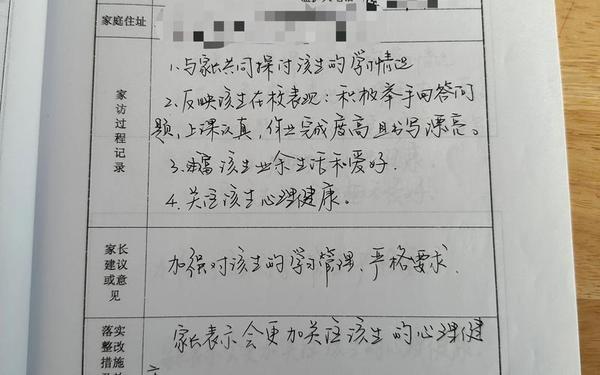 家庭住址
家访过程记录
1.与家长共同探讨该生的学习情况
2.反映该生在校表现：积极举手回答问
题，上课认真，作业完成度高且书写漂亮。
3.该生业余生活和爱好.
4.关注该生心理健康。
家长
建议
或意
见
加强对该生的学习管理、严格要求.
落实
整改
措施
家长表示会更加关注该生的心理健